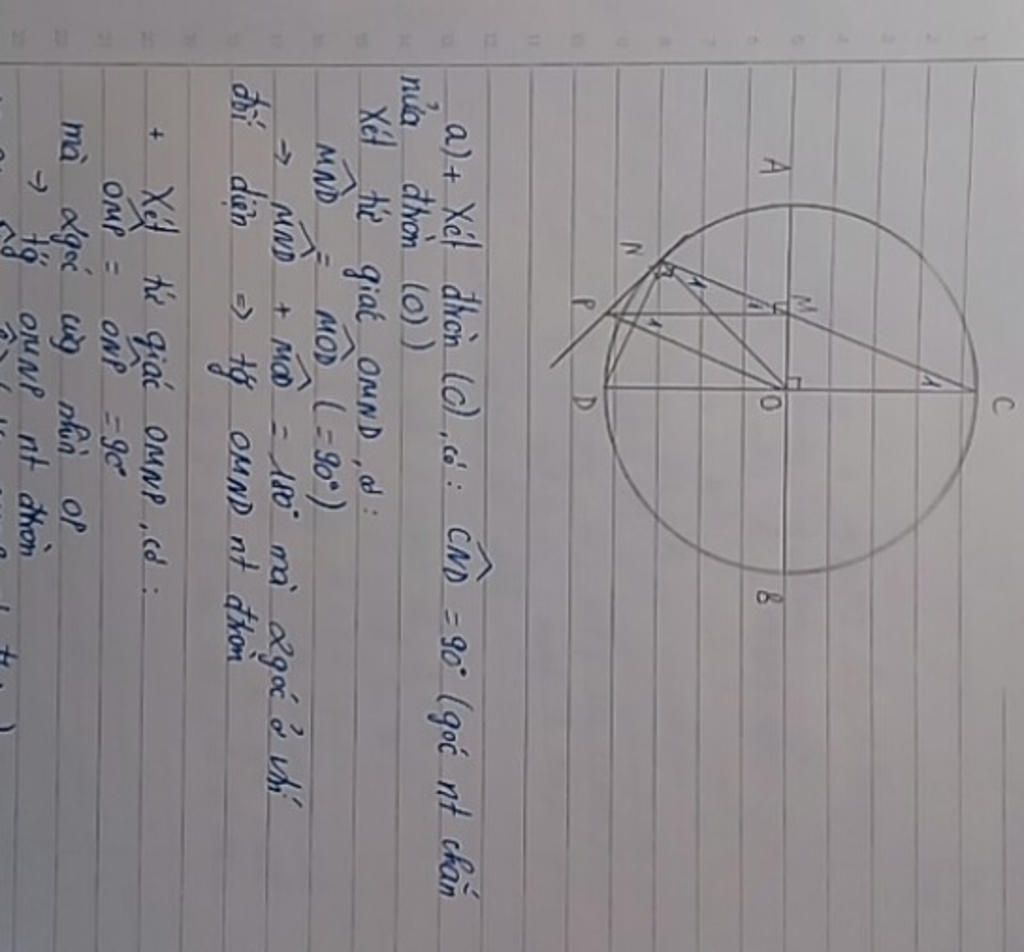 C
A
M
O
B
N
P
D
1
1
1
1
a) + Xét đtròn (O), có: CND = 90° (góc nt chắn
nửa đtròn (O))
Xét tứ giác OMND, có:
MND = MOD (= 90°)
→ MND + MOD = 180° mà 2 góc ở vtrí
đối diện ⇒ tg OMND nt đtròn
+ Xét tứ giác OMNP, có:
OMP = ONP = 90°
mà 2 góc cùng nhìn OP
→ tg OMNP nt đtròn